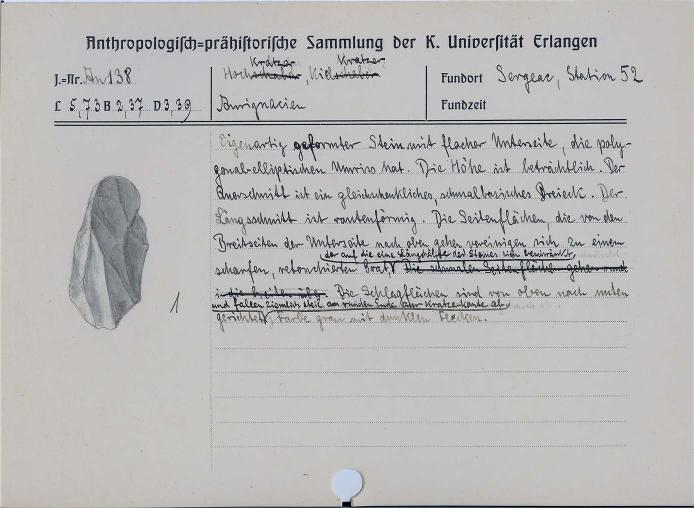 Anthropologisch=prähistorische Sammlung der K. Universität Erlangen
Kratzer Kratzer
J.=Nr. An 138 Hochschaber, Kielschaber Fundort Sergeac, Station 52
L 5,73 B 2,37 D 3,39 Aurignacien Fundzeit
Eigenartig geformter Stein mit flacher Unterseite, die poly-
gonal-elliptischen Umriss hat. Die Höhe ist beträchtlich. Der
Querschnitt ist ein gleichschenkliches, schmalbasisches Dreieck. Der
Längsschnitt ist rautenförmig. Die Seitenflächen, die von den
Breitseiten der Unterseite nach oben gehen vereinigen sich zu einem
der auf die eine Längshälfte des Steines sich beschränkt,
scharfen, retouchierten Grat. Die schmalen Seitenflächen gehen rund
in die breiten üb. Die Schlagflächen sind von oben nach unten
und fallen ziemlich steil am runden Ende zur Kratzerkante ab,
gerichtet, Farbe grau mit dunklen Flecken.
1